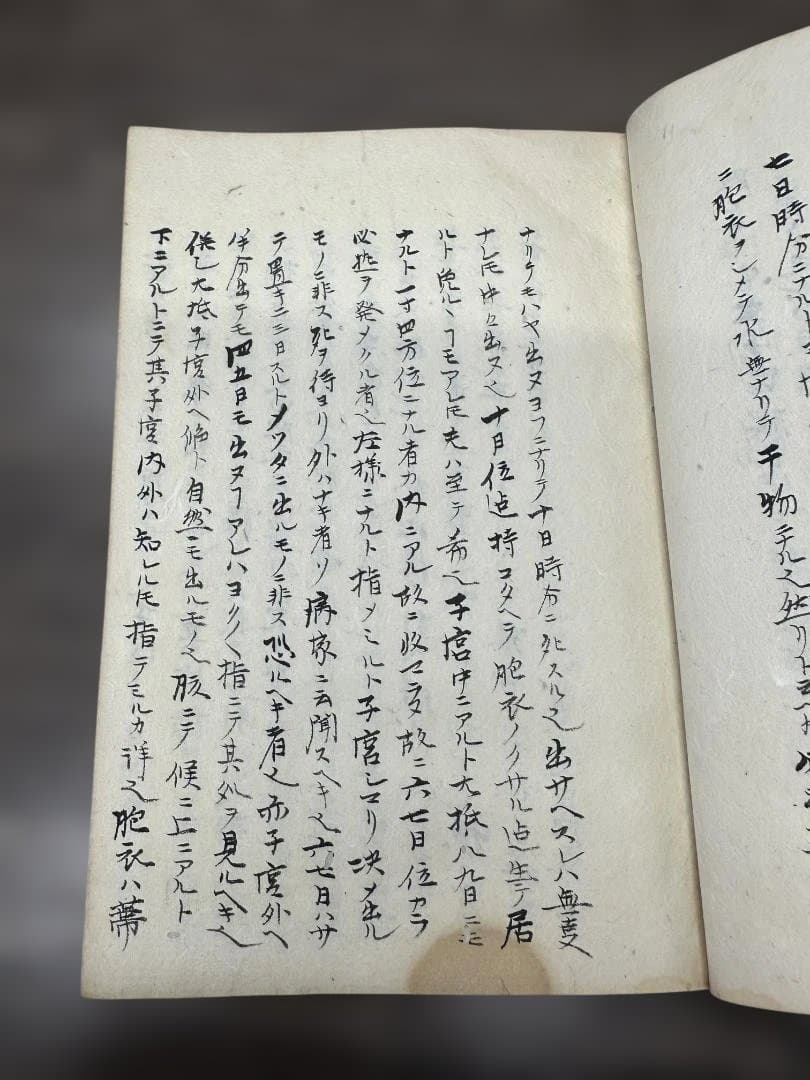 七日時分ニナルト
ニ胞衣ヲシメテ水無ナリテ干物ニナル也然リト
ナリテモハヤ出ヌヨフニナリテ十日時分ニ死スル也出サヘスレハ無事
ナレ𪜈中々出ヌ也十日位迠持コタヘテ胞衣ノクサル迠生テ居
ルト免ルヽヿモアレ𪜈夫ハ至テノ希也子宮中ニアルト大抵八九日ニ
ナルト一寸四方位ニナル者カ内ニアル故ニ收マラヌ故ニ六七日位カラ
必热ヲ発メクル者也左様ニナルト指メミルト子宮シマリ决メ出ル
モノニ非ス死ヲ待ヨリ外ハナキ者ソ病家ニ云聞スヘキ也六七日ハサ
テ置キ二三日スルトメツタニ出ルモノニ非ス恐ルヘキ者也亦子宮外ヘ
半分出テモ四五日モ出ヌヿアレハヨク〱指ニテ其処ヲ見ルヘキ也
併シ大抵子宮外ヘ出ルト自然ニモ出ルモノ也 ニテ候ニ上ニアルト
下ニアルトニテ其子宮内外ハ知レル𪜈指ニテミルカ詳也胞衣ハ臍